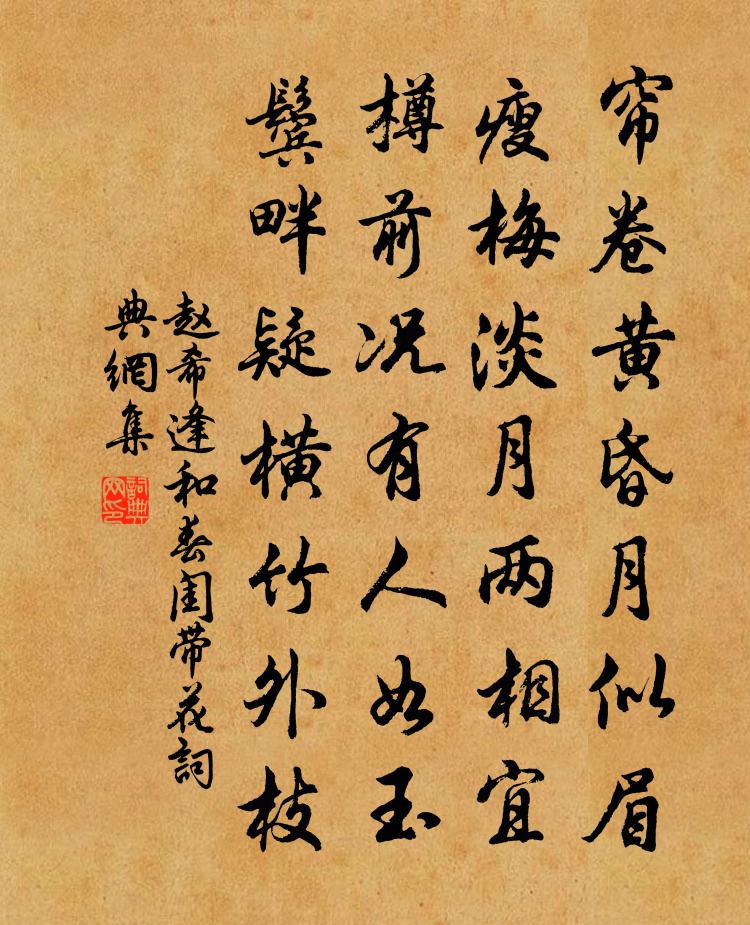 帘卷黄昏月似眉
瘦梅淡月两相宜
樽前况有人如玉
鬓畔疑横竹外枝
赵希逢和春闺带花词
典網集
詞典网印